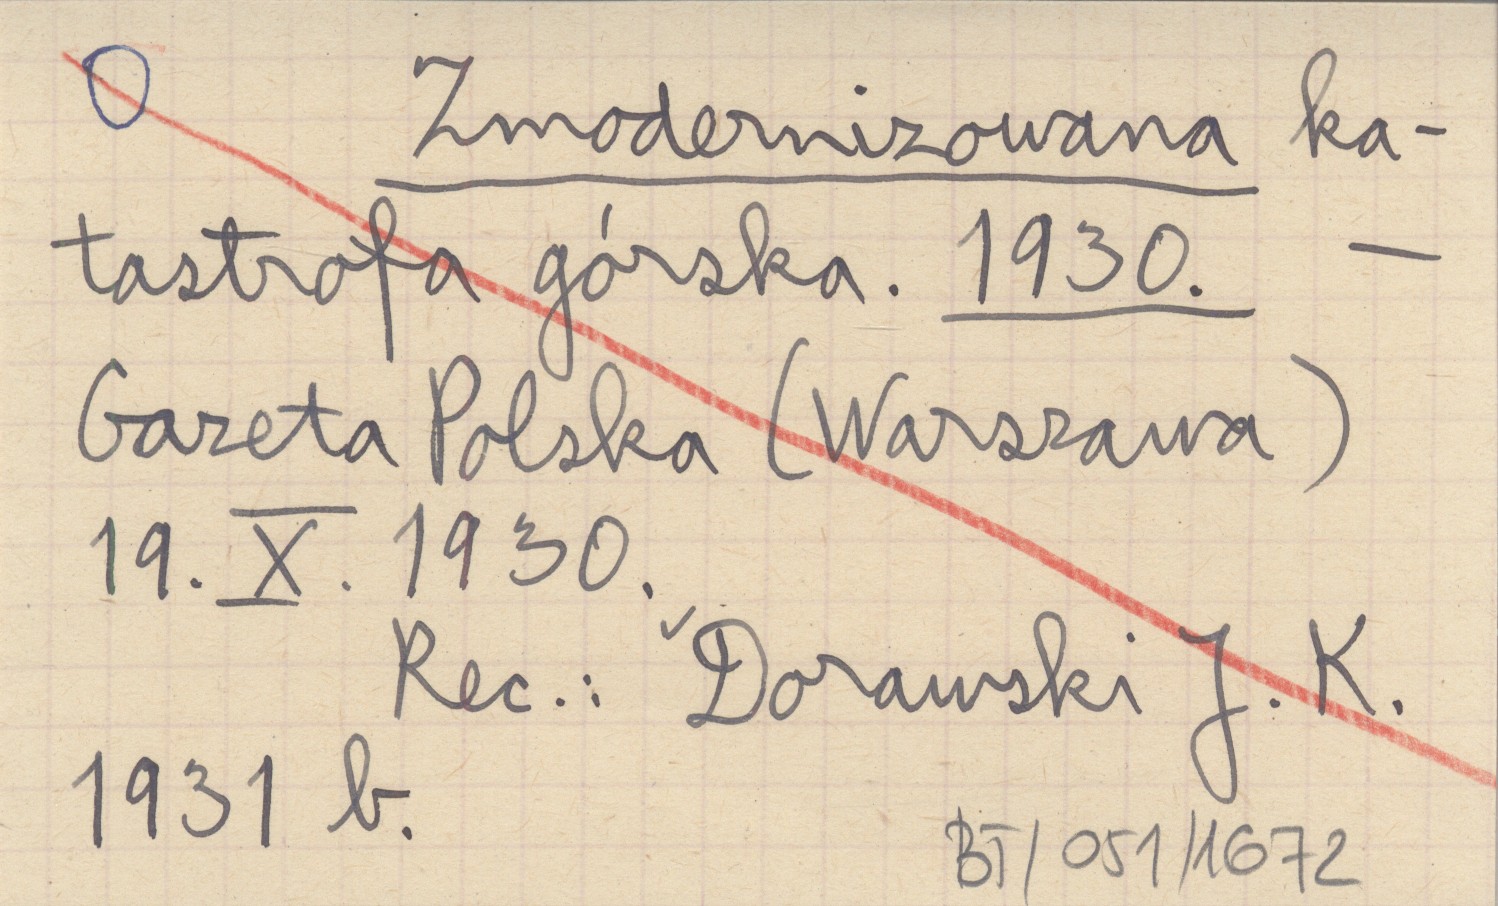 Zmodernizowana ka-
tastrofa górska. 1930. —
Gazeta Polska (Warszawa)
19. X. 1930.
Rec.: Dorawski J. K.
1931 b.
BT/051/1672